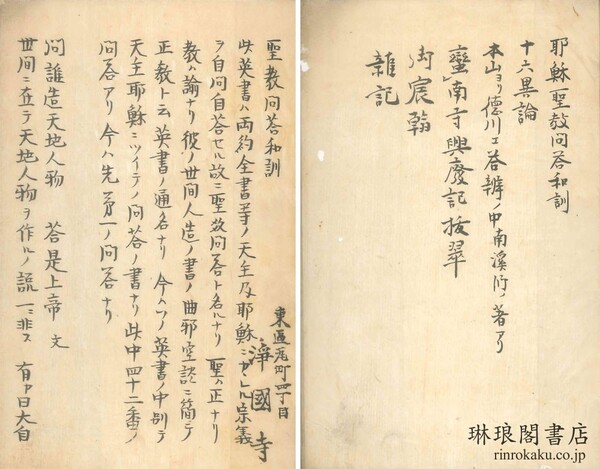 耶穌聖教問答和訓
十六異論
本山ヨリ徳川エ答辨ノ中南溪師ノ著アリ
蠻南寺興廢記抜翠
御宸翰
雜記
聖教問答和訓
此英書ハ両約全書等ノ天主及耶穌ニカヽル宗義
ヲ自問自答セル故ニ聖教問答ト名ルナリ 聖ハ正ナリ
教ハ諭ナリ彼ノ世間人造ノ書ノ曲邪空談ニ簡テ
正教ト云英書ノ通名ナリ 今ハソノ英書ノ中別テ
天主耶穌ニツイテノ問答ノ書ナリ此中四十二番ノ
問答アリ 今ハ先第一ノ問答ナリ
問誰造天地人物 答是上帝 文
世間ニ在テ天地人物ヲ作ルノ説一ニ非ス 有ハ曰大自
東區尾町四丁目
淨國寺
琳琅閣書店
rinrokaku.co.jp